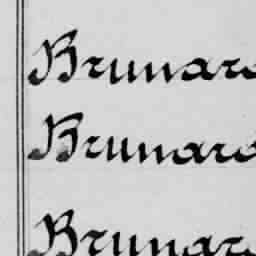 Brunaro
Brunaro
Brunaro